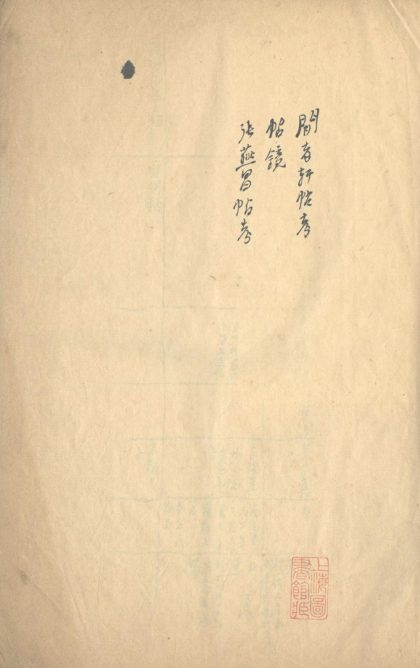 閒者軒帖考
帖鏡
張燕昌帖考
上海圖
書館藏